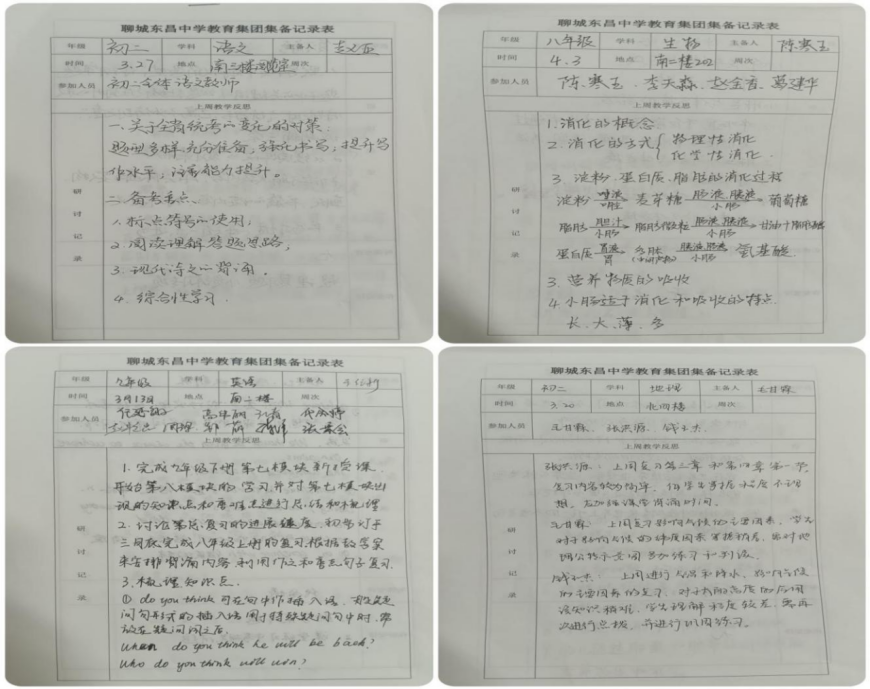 聊城东昌中学教育集团集备记录表
年级 初二 学科 语文 主备人
时间 3.27 地点 周次
参加人员 初二全体语文教师
上周教学反思
研讨记录
一、关于全省统考之变化的对策
题型多样,充分准备,强化书写,提升写
作水平,注重能力提升。
二、备考重点
1.标点符号的使用;
2.阅读理解答题思路;
3.现代诗文之背诵。
4.综合性学习.
聊城东昌中学教育集团集备记录表
年级 八年级 学科 生物 主备人 陈寒玉
时间 4.3 地点 南二楼202 周次
参加人员 陈寒玉、李天淼、赵金香、葛建华
上周教学反思
研讨记录
1.消化的概念
2.消化的方式{物理性消化
化学性消化.
3.淀粉、蛋白质、脂肪的消化过程
淀粉 唾液 口腔 麦芽糖 肠液、胰液 小肠 葡萄糖
脂肪 胆汁 小肠 脂肪微粒 肠液、胰液 小肠 甘油+脂肪酸
蛋白质 胃液 胃 多肽 胰液、肠液 小肠 氨基酸
3.营养物质的吸收
4.小肠适于消化和吸收的特点.
长、大、薄、多
聊城东昌中学教育集团集备记录表
年级 九年级 学科 英语 主备人
时间 3月13日 地点 南二楼 周次
参加人员
上周教学反思
研讨记录
1.完成九年级下册第七模块新授课,
开始第八模块的学习,并对第七模块出
现的知识点和重难点进行总结和梳理
2.讨论第一轮复习的进展进度,初步计于
三月底完成八年级上册的复习.根据教学案
来安排背诵内容,利用作文和重点句子复习.
3.梳理知识点.
① do you think 可在句中作插入语,
问句形式的插入语用于特殊疑问句中时,常
放在疑问词之后
When do you think he will be back?
Who do you think will win?
聊城东昌中学教育集团集备记录表
年级 初二 学科 地理 主备人
时间 3.20 地点 北四楼 周次
参加人员
上周教学反思
研讨记录
张洪源:上周复习第三章和第四章第一节,
复习内容较为简单,但学生掌握程度不理
想,应加强课堂背诵时间.
上周复习影响气候的主要因素,学生
对于影响气候的纬度因素掌握稍差,
上周进行气温和降水、影响气候
的主要因素的复习,
该知识稍难,学生理解程度较差,需再
次进行点拨,并进行巩固练习.